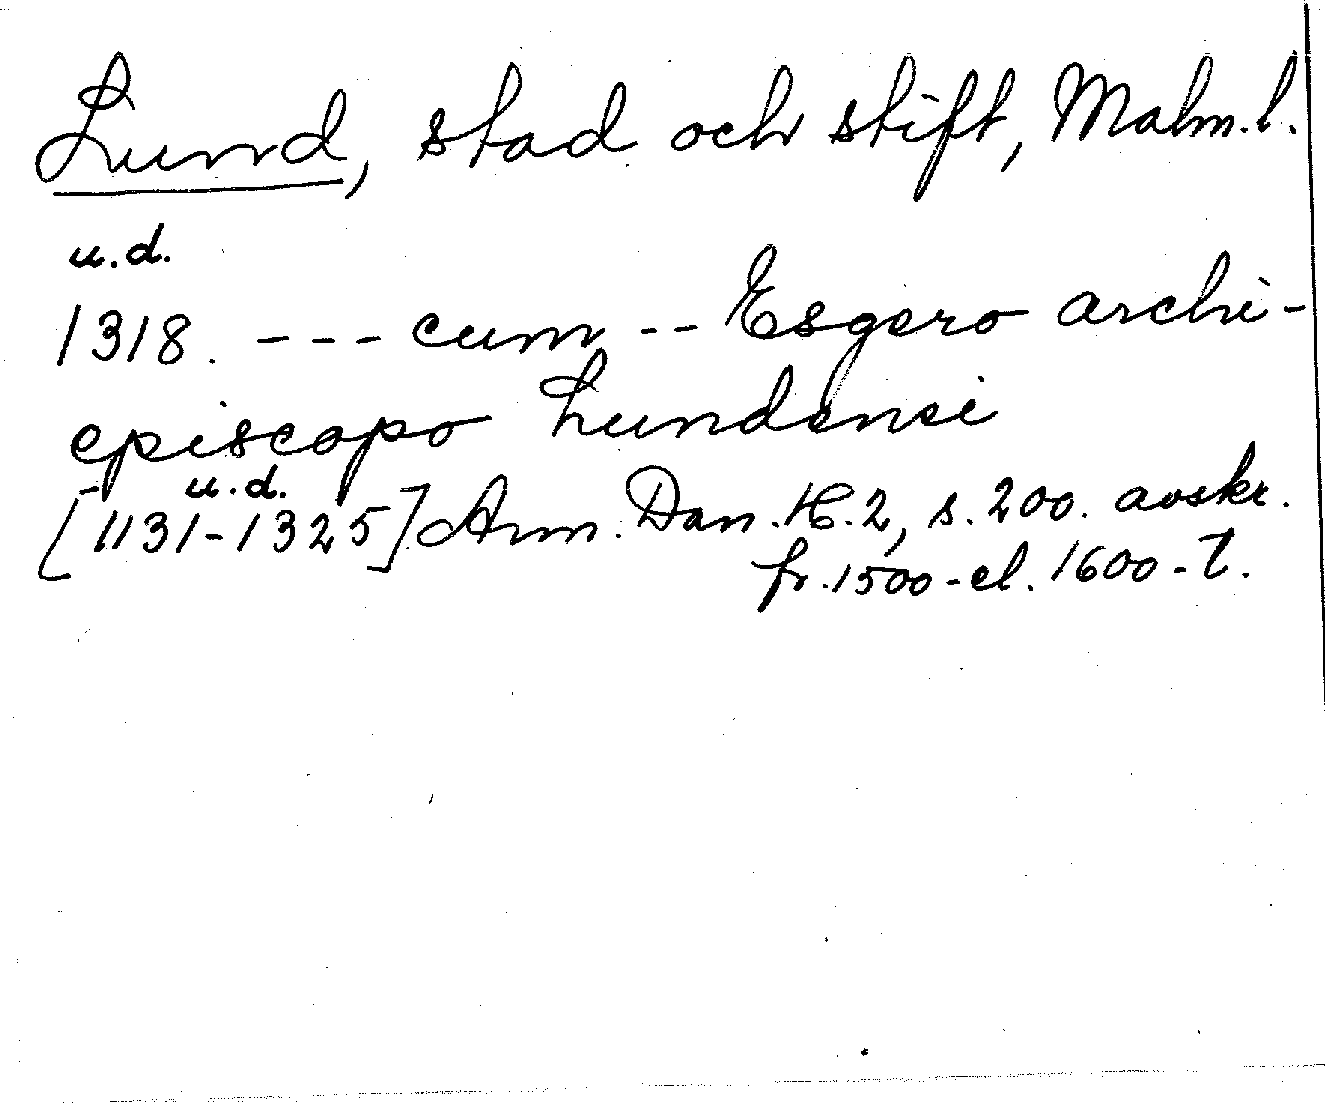 Lund, stad och stift, Malm.l.
u.d.
1318. --- cum -- Esgero archi-
episcopo Lundensi
u.d.
[1131-1325] Ann. Dan. H.2, s.200. avskr.
fr.1500-el.1600-t.